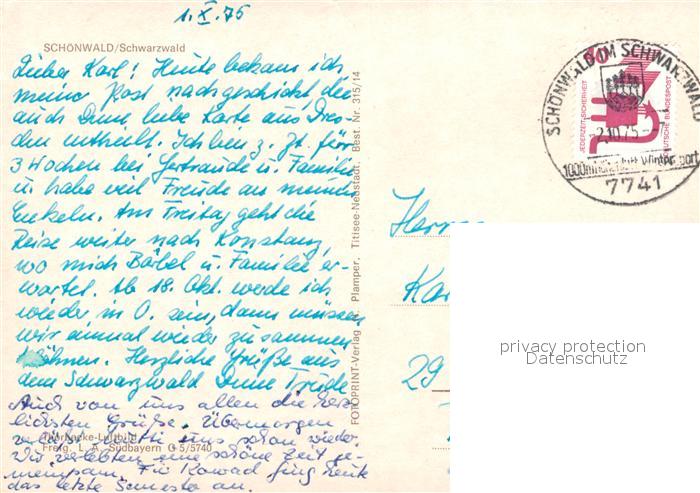 1.X.75
SCHÖNWALD/Schwarzwald
Lieber Karl! Heute bekam ich
meine Post nachgeschickt, die
auch Deine liebe Karte aus Dres-
den enthielt. Ich bin z. Zt. für
3 Wochen bei Gertraude u. Familie
u. habe viel Freude an meinen
Enkeln. Am Freitag geht die
Reise weiter nach Konstanz,
wo mich Bärbel u. Familie er-
wartet. Ab 18. Okt. werde ich
wieder in O. sein, dann müssen
wir einmal wieder zusammen
Herzliche Grüße aus
dem Schwarzwald Deine Trude
Auch von uns allen die herz-
lichsten Grüße. Übermorgen
verläßt Mutti uns schon wieder.
Wir verlebten eine schöne Zeit ge-
meinsam. Für Konrad fing heute
das letzte Semester an.
Thorbecke-Luftbild
Freig. L. A. Südbayern G 5/5740
FOTOPRINT-Verlag Plamper, Titisee-Neustadt, Best. Nr. 315/14
SCHÖNWALD IM SCHWARZWALD
-2.10.75
1000m
Wintersport
7741
JEDERZEIT SICHERHEIT
DEUTSCHE BUNDESPOST
40
Herrn
Kar
29
privacy protection
Datenschutz